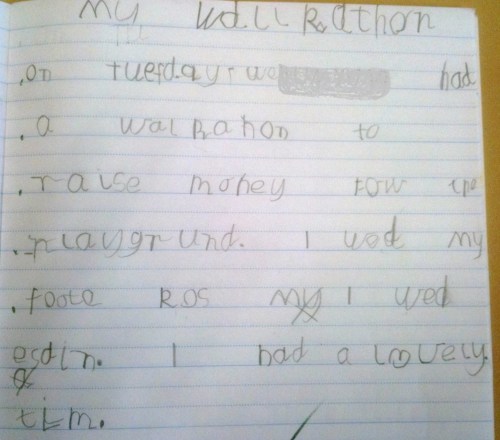 my wallkathon
on tuesday we had
a walkahon to
raise money fow the
playgrund. I wod my
foote ROS my I wed
esdln. I had a lovely
tLm.